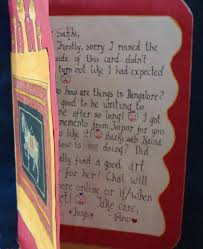 Sakhi,
Firstly, sorry I ruined the
side of this card...didn't
turn out like I had expected
how are things in Bangalore?
good to be writing to
me after so long! I got
memento from Jaipur for you
u like it! hows
is doing? Did
ally find a good art
for her! Chal will
ore online or if/when
et! Take care,
hugs